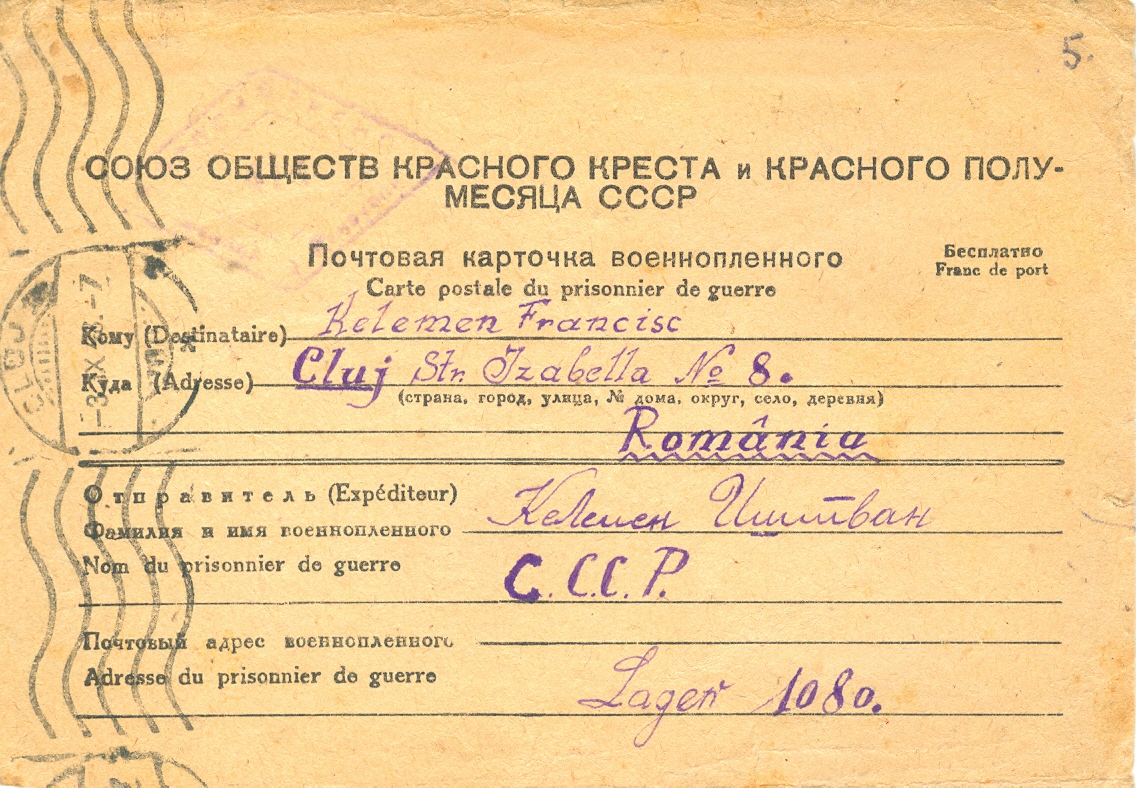 5.
СОЮЗ ОБЩЕСТВ КРАСНОГО КРЕСТА и КРАСНОГО ПОЛУ-
МЕСЯЦА СССР
Почтовая карточка военнопленного
Бесплатно
Carte postale du prisonnier de guerre
Franc de port
Кому (Destinataire) Kelemen Francisc
Куда (Adresse) Cluj Str. Izabella No 8.
(страна, город, улица, № дома, округ, село, деревня)
România
Отправитель (Expéditeur)
Фамилия и имя военнопленного Келемен Иштван
Nom du prisonnier de guerre С.С.С.Р.
Почтовый адрес военнопленного
Adresse du prisonnier de guerre Lager 1080.
CLUJ